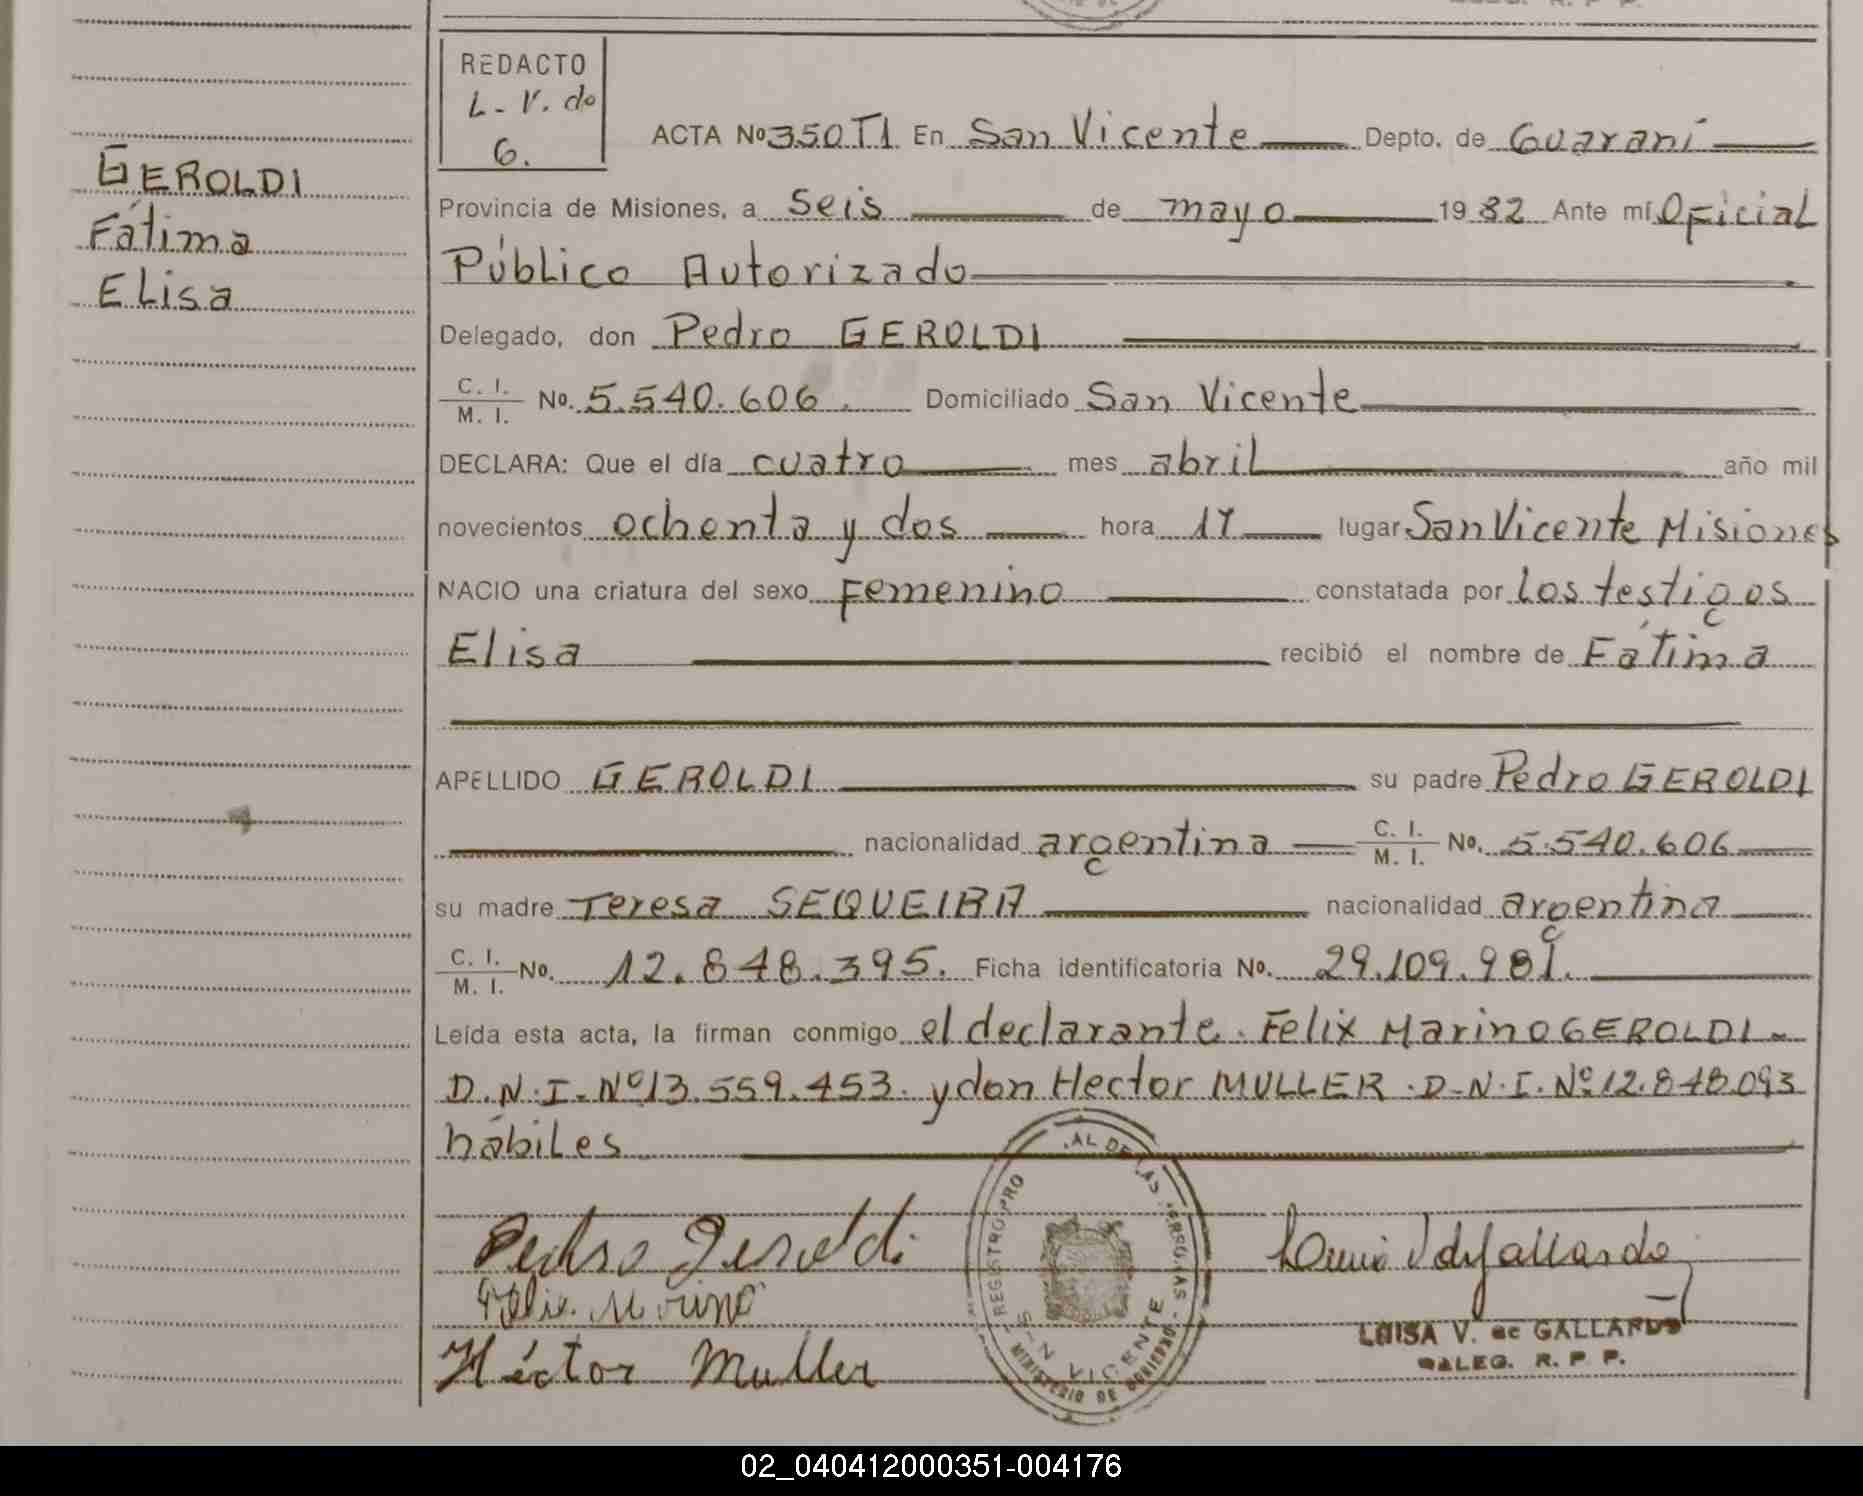 REDACTO
L-V. do
G.
GEROLDI
Fátima
Elisa
ACTA Nº 350T1 En San Vicente Depto. de Guaraní
Provincia de Misiones, a seis de mayo 1982 Ante mí Oficial
Público Autorizado
Delegado, don Pedro GEROLDI
C. I. / M. I. No. 5.540.606. Domiciliado San Vicente
DECLARA: Que el día cuatro mes abril año mil
novecientos ochenta y dos hora 17 lugar San Vicente Misiones
NACIO una criatura del sexo Femenino constatada por Los testigos
Elisa recibió el nombre de Fátima
APELLIDO GEROLDI su padre Pedro GEROLDI
nacionalidad argentina C. I. / M. I. No. 5.540.606
su madre Teresa SEQUEIRA nacionalidad argentina
C. I. / M. I. No. 12.848.395. Ficha identificatoria No. 29.109.981.
Leída esta acta, la firman conmigo el declarante. Felix Marino GEROLDI-
D.N.I. Nº 13.559.453. y don Hector MULLER. D-N.I. Nº 12.848.093
hábiles
Pedro Geroldi
Felix Marino
Héctor Muller
REGISTRO PRO AL DE LAS PERSONAS - MINISTERIO DE GOBIERNO
VICENTE
LUISA V. de GALLARDO
DALEG. R. P. P.
02_040412000351-004176